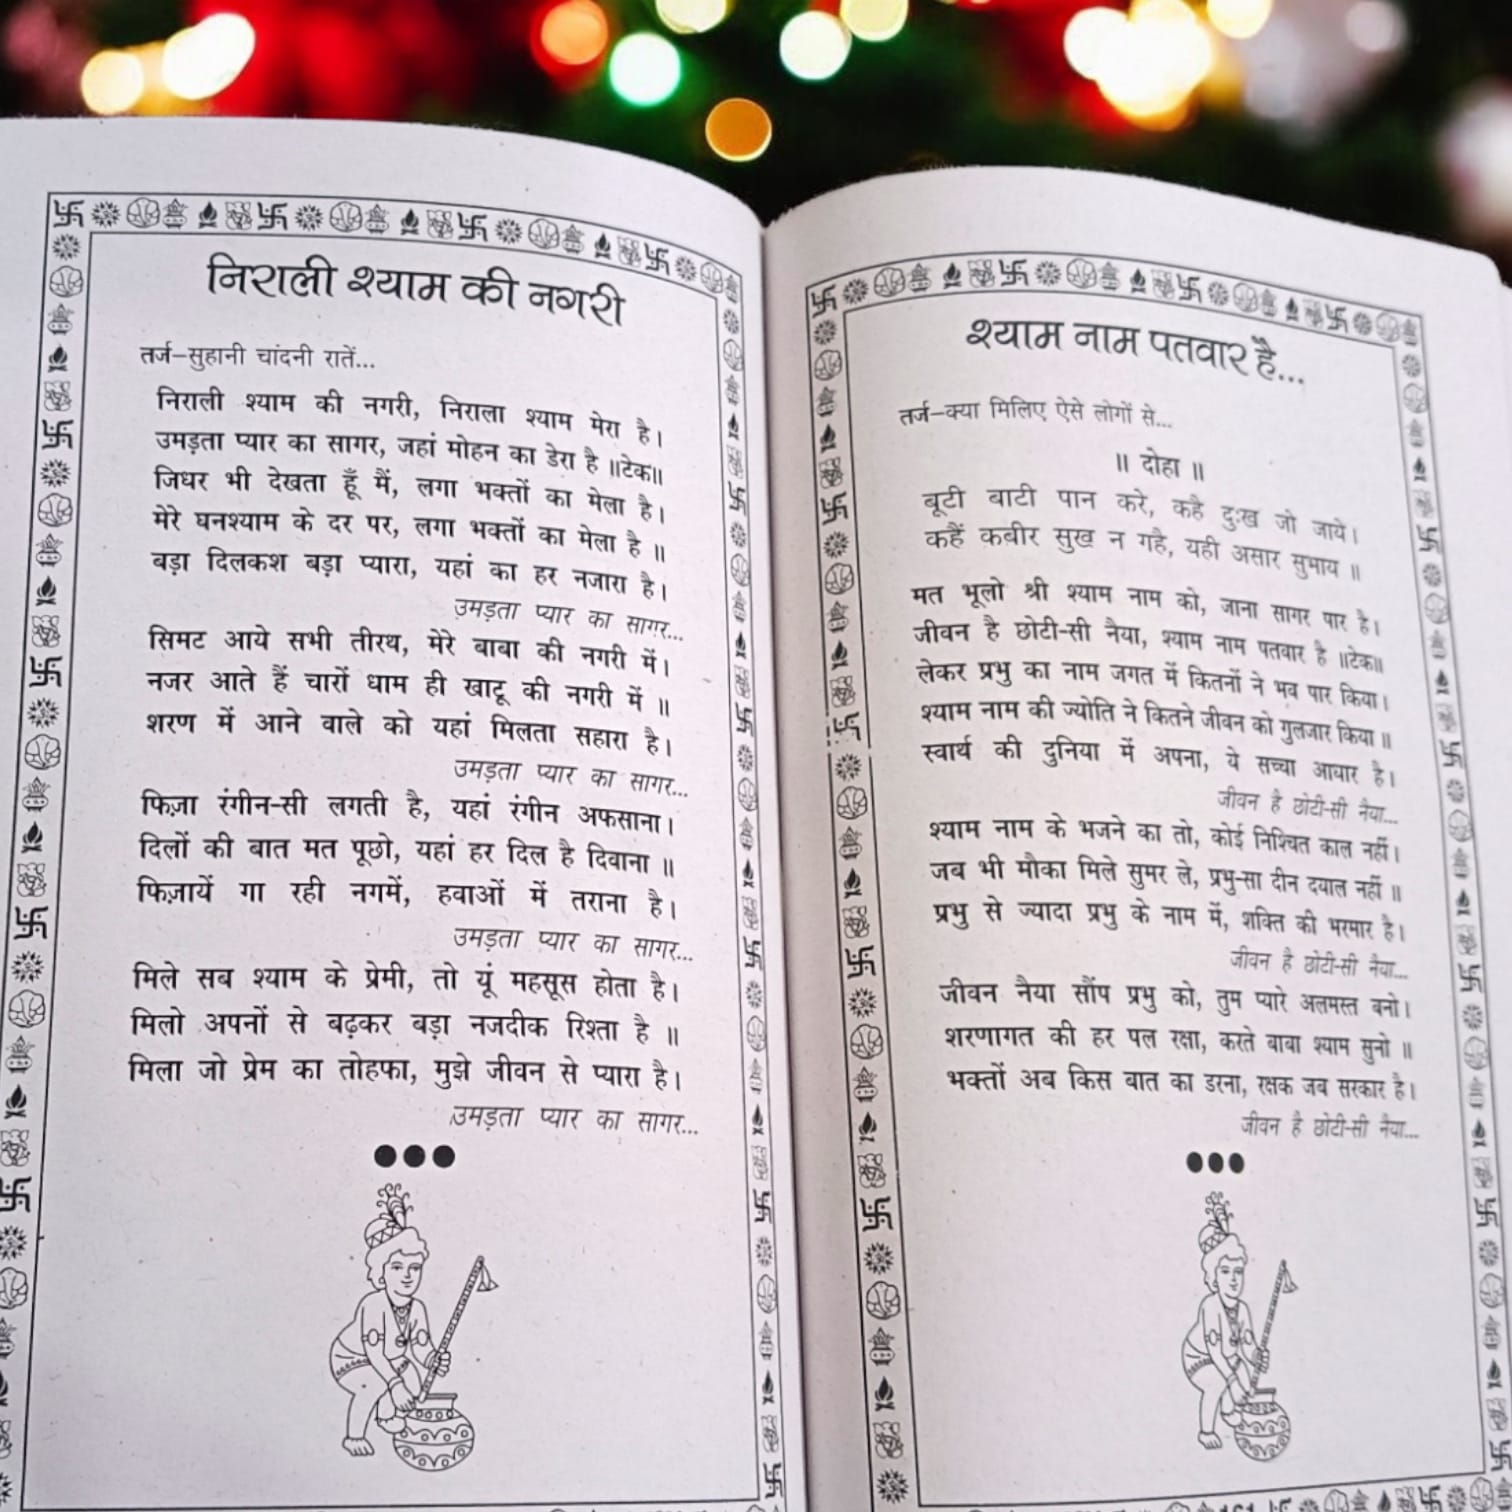 निराली श्याम की नगरी
तर्ज–सुहानी चांदनी रातें...
निराली श्याम की नगरी, निराला श्याम मेरा है।
उमड़ता प्यार का सागर, जहां मोहन का डेरा है ॥टेक॥
जिधर भी देखता हूँ मैं, लगा भक्तों का मेला है।
मेरे घनश्याम के दर पर, लगा भक्तों का मेला है ॥
बड़ा दिलकश बड़ा प्यारा, यहां का हर नजारा है।
उमड़ता प्यार का सागर...
सिमट आये सभी तीरथ, मेरे बाबा की नगरी में।
नजर आते हैं चारों धाम ही खाटू की नगरी में ॥
शरण में आने वाले को यहां मिलता सहारा है।
उमड़ता प्यार का सागर...
फिज़ा रंगीन-सी लगती है, यहां रंगीन अफसाना।
दिलों की बात मत पूछो, यहां हर दिल है दिवाना ॥
फिज़ायें गा रही नगमें, हवाओं में तराना है।
उमड़ता प्यार का सागर...
मिले सब श्याम के प्रेमी, तो यूं महसूस होता है।
मिलो अपनों से बढ़कर बड़ा नजदीक रिश्ता है ॥
मिला जो प्रेम का तोहफा, मुझे जीवन से प्यारा है।
उमड़ता प्यार का सागर...
श्याम नाम पतवार है...
तर्ज–क्या मिलिए ऐसे लोगों से...
॥ दोहा ॥
बूटी बाटी पान करे, कहै दुःख जो जाये।
कहैं कबीर सुख न गहै, यही असार सुभाय ॥
मत भूलो श्री श्याम नाम को, जाना सागर पार है।
जीवन है छोटी-सी नैया, श्याम नाम पतवार है ॥टेक॥
लेकर प्रभु का नाम जगत में कितनों ने भव पार किया।
श्याम नाम की ज्योति ने कितने जीवन को गुलजार किया ॥
स्वार्थ की दुनिया में अपना, ये सच्चा आधार है।
जीवन है छोटी-सी नैया...
श्याम नाम के भजने का तो, कोई निश्चित काल नहीं।
जब भी मौका मिले सुमर ले, प्रभु-सा दीन दयाल नहीं ॥
प्रभु से ज्यादा प्रभु के नाम में, शक्ति की भरमार है।
जीवन है छोटी-सी नैया...
जीवन नैया सौंप प्रभु को, तुम प्यारे अलमस्त बनो।
शरणागत की हर पल रक्षा, करते बाबा श्याम सुनो ॥
भक्तों अब किस बात का डरना, रक्षक जब सरकार है।
जीवन है छोटी-सी नैया...